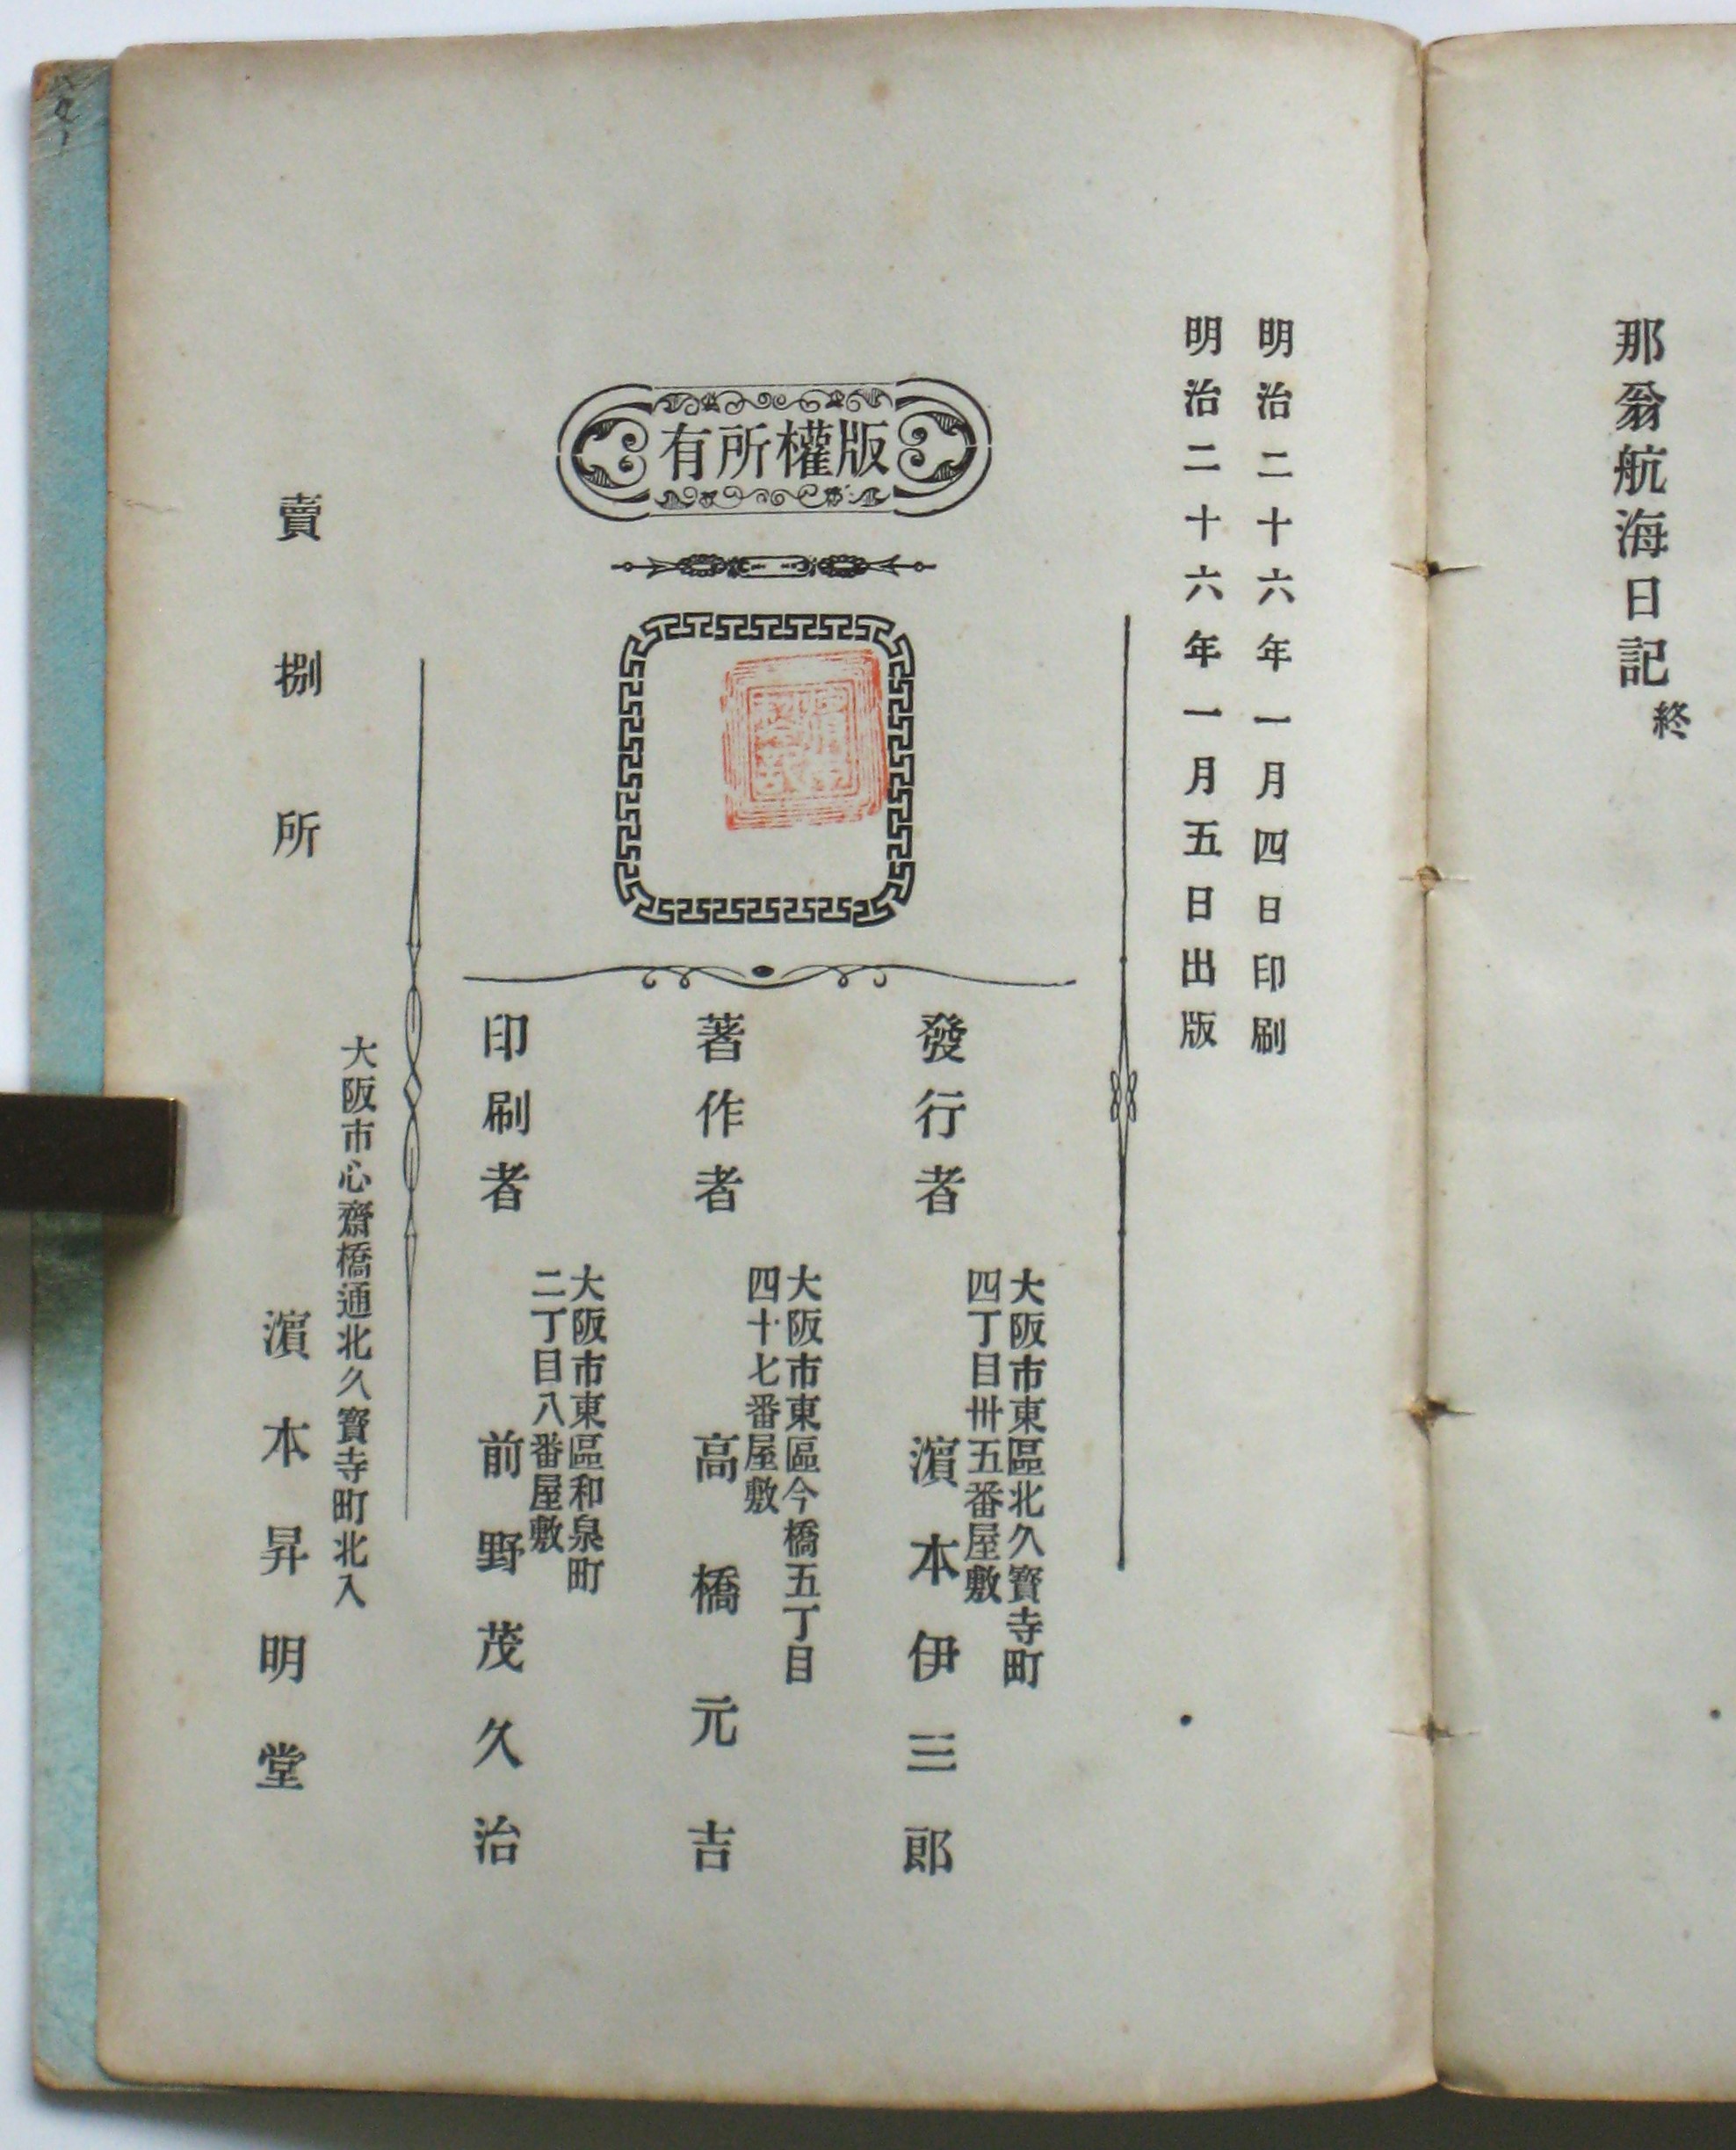 那翁航海日記終
明治二十六年一月四日印刷
明治二十六年一月五日出版
有所權版
發行者
大阪市東區北久寶寺町
四丁目卅五番屋敷
濵本伊三郎
著作者
大阪市東區今橋五丁目
四十七番屋敷
高橋元吉
印刷者
大阪市東區和泉町
二丁目八番屋敷
前野茂久治
賣捌所
大阪市心齋橋通北久寶寺町北入
濵本昇明堂